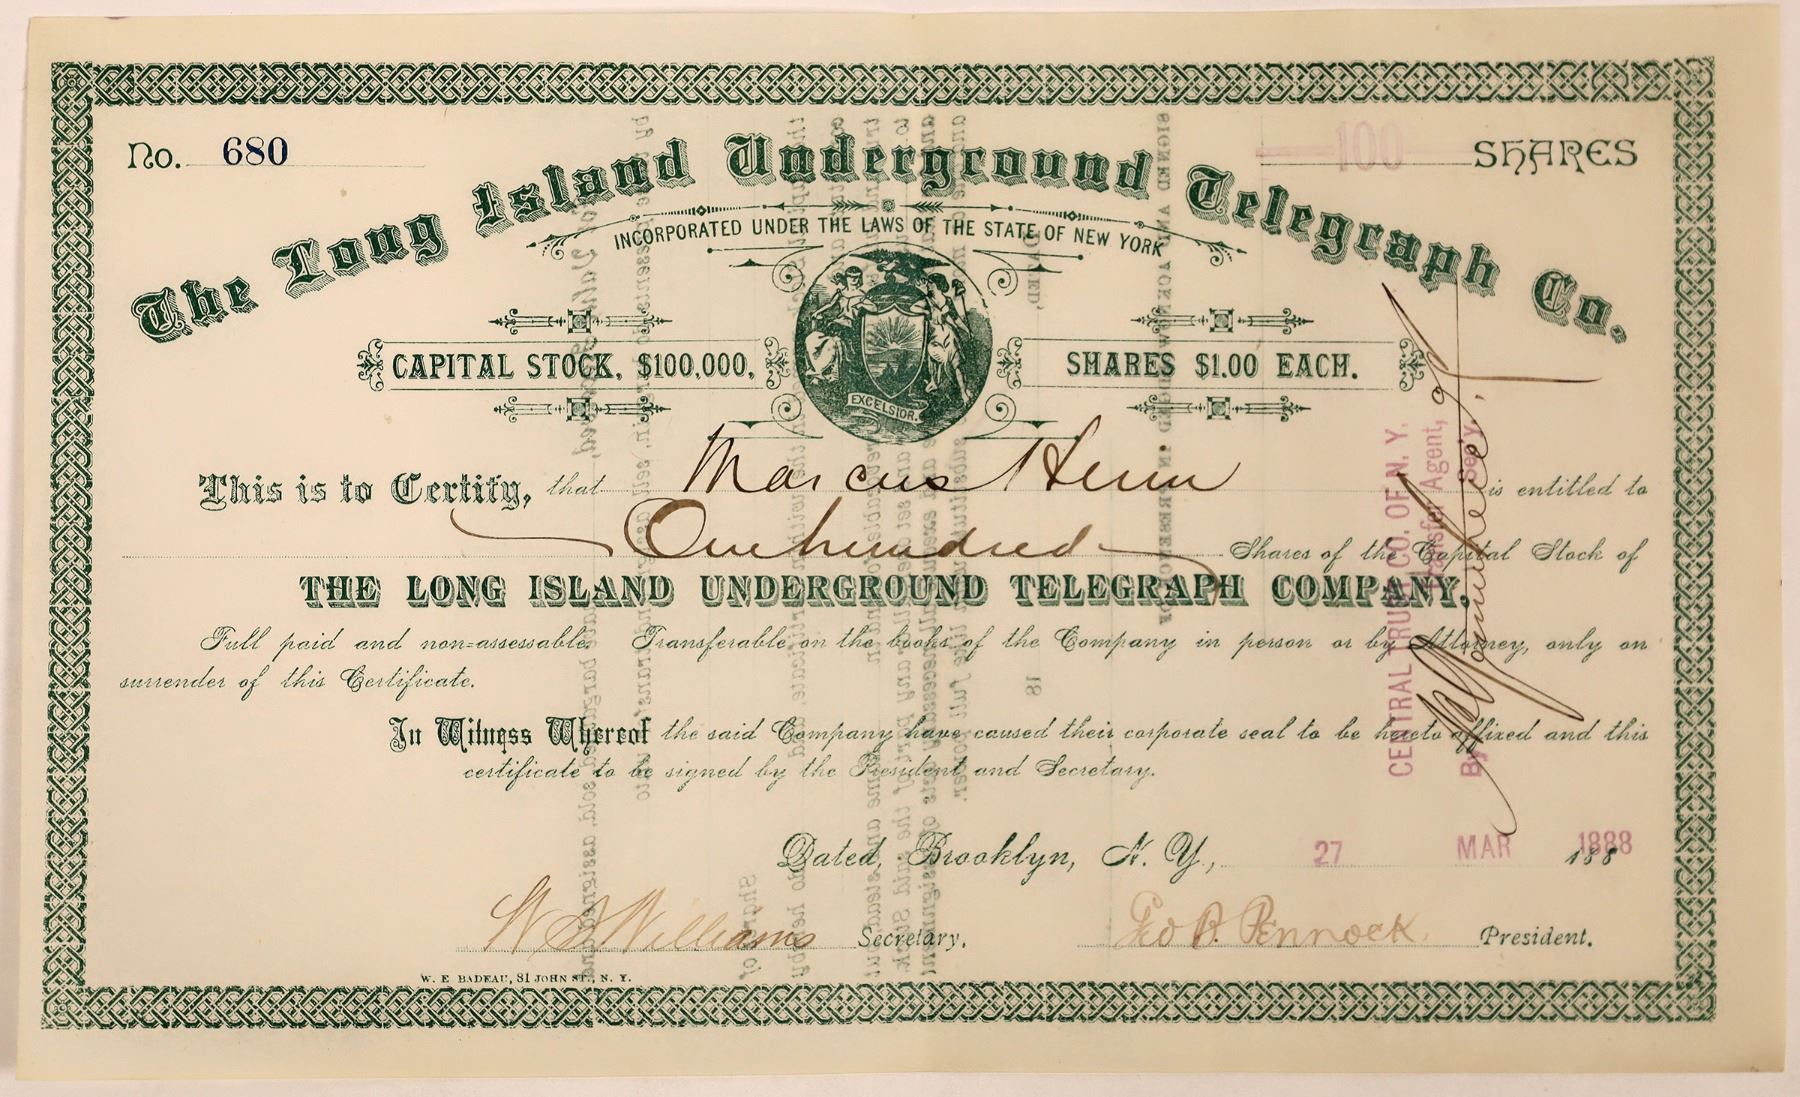 No. 680
100 SHARES
The Long Island Underground Telegraph Co.
INCORPORATED UNDER THE LAWS OF THE STATE OF NEW YORK
CAPITAL STOCK, $100,000,
SHARES $1.00 EACH.
EXCELSIOR.
This is to Certify, that Marcus Henn is entitled to
One hundred Shares of the Capital Stock of
THE LONG ISLAND UNDERGROUND TELEGRAPH COMPANY.
Full paid and non=assessable. Transferable on the books of the Company in person or by Attorney, only on
surrender of this Certificate.
In Witness Whereof the said Company have caused their corporate seal to be hereto affixed and this
certificate to be signed by the President and Secretary.
Dated, Brooklyn, N. Y., 27 MAR 1888 188
W J Williams Secretary.
Geo B. Pennock President.
W. E BADEAU, 81 JOHN ST., N. Y.
CENTRAL TRUST CO. OF N. Y.
Transfer Agent,
By Sec'y.